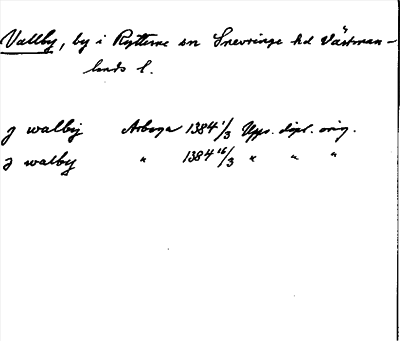 Vallby, by i Rytterne sn Snevringe hd Västman-
lands l.
j walby Arboga 1384 1/3 Upps. dipl. orig.
j walby " 1384 16/3 " " "